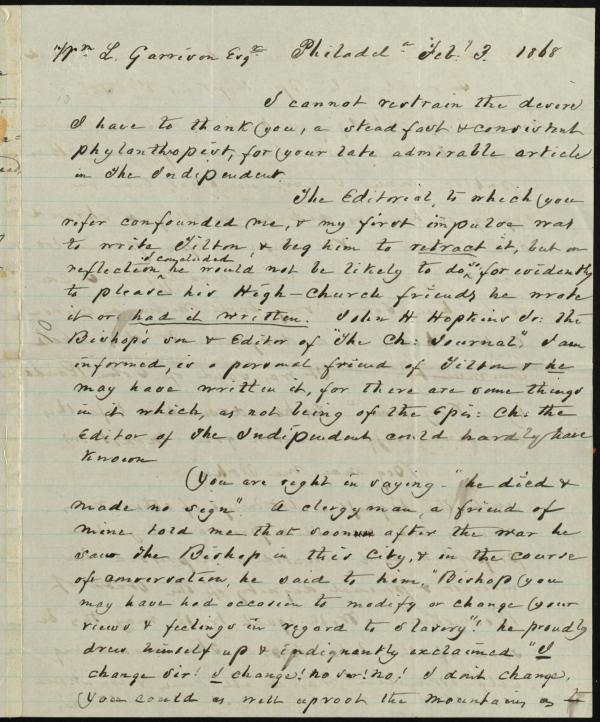 Wm L. Garrison Esqr Philadela Feby 3. 1868
I cannot restrain the desire
I have to thank you, a steadfast & consistent
phylanthropist, for your late admirable article
in The Independent.
The Editorial, to which you
refer confounded me, & my first impulse was
to write Tilton, & beg him to retract it, but on
reflection I concluded he would not be likely to do so, for evidently
to please his High-Church friends he wrote
it or had it written. John H Hopkins Jr: the
Bishop's son & Editor of "The Ch: Journal", I am
informed, is a personal friend of Tilton & he
may have written it, for there are some things
in it which, as not being of the Epis: Ch: the
Editor of The Independent could hardly have
known
You are right in saying "he died &
made no sign". A clergyman, a friend of
mine told me that soon after the war he
saw the Bishop in this City, & in the course
of conversation, he said to him, "Bishop you
may have had occasion to modify or change your
views & feelings in regard to Slavery"! he proudly
drew himself up & indignantly exclaimed "I
change sir! I change! no sir! no! I don't change.
You could as well uproot the mountains as